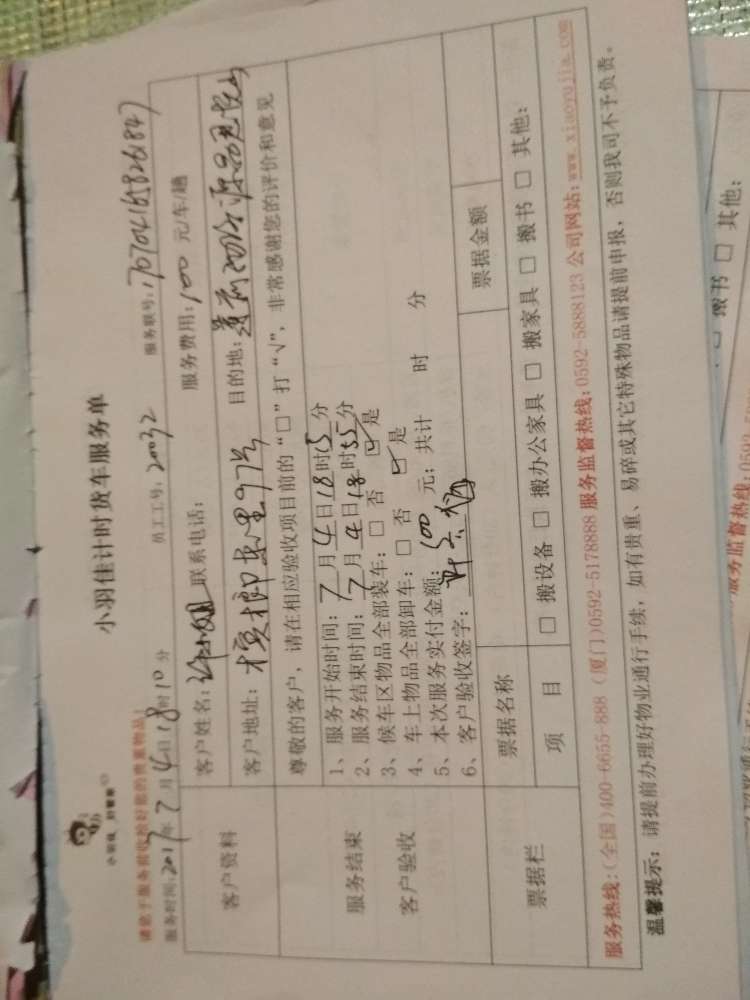 小羽佳计时货车服务单
小羽佳 好管家
请您于服务前收拾好您的贵重物品!
服务时间:2017年7月4日18时10分 员工工号:20032 服务联号:1707041658261847
客户资料
客户姓名:许小姐 联系电话: 服务费用:100 元/车/趟
客户地址:槟榔东里97号 目的地:莲前
服务结束
客户验收
尊敬的客户,请在相应验收项目前的“□”打“√”,非常感谢您的评价和意见
1、服务开始时间:7月4日18时15分
2、服务结束时间:7月4日18时55分
3、候车区物品全部装车:□ 否 ☑ 是
4、车上物品全部卸车:□ 否 ☑ 是
5、本次服务实付金额:100 元;共计 时 分
6、客户验收签字:
票据栏
票据名称 票据金额
项 目 □ 搬设备 □ 搬办公家具 □ 搬家具 □ 搬书 □ 其他:
服务热线:(全国)400-6655-888 (厦门)0592-5178888 服务监督热线:0592-5888123 公司网站:www.xiaoyujia.com
温馨提示:请提前办理好物业通行手续,如有贵重、易碎或其它特殊物品请提前申报,否则我司不予负责。
搬书 □ 其他:
服务监督热线:0592